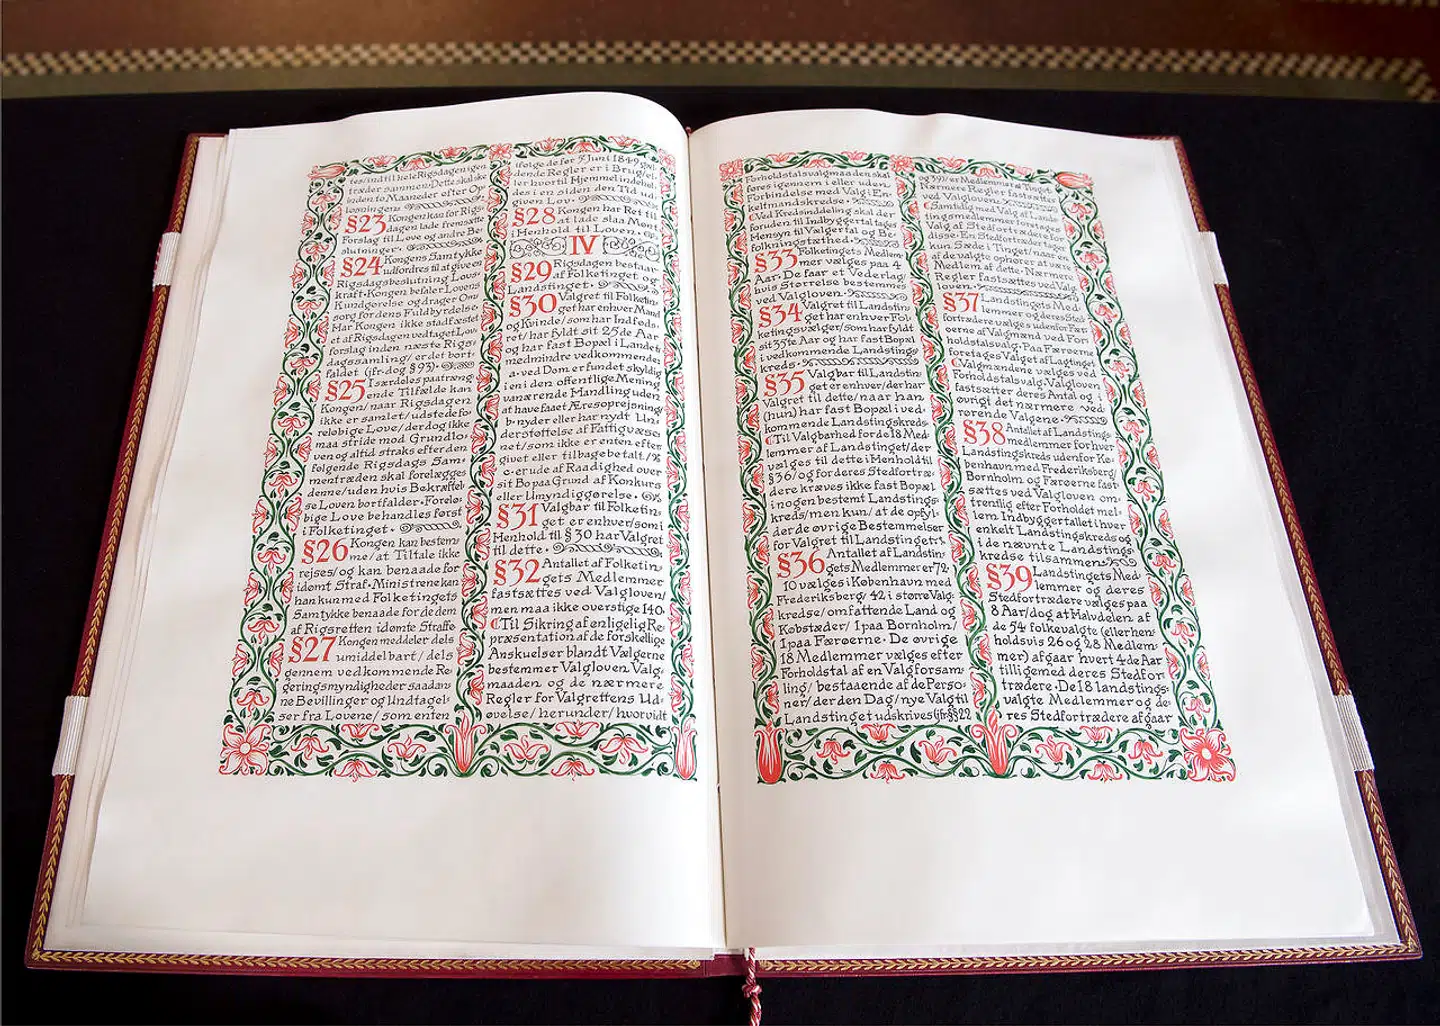 tes/indtil hele Rigsdagen igen
træder sammen. Dette skal ske
inden to Maaneder efter Op-
løsningen.
§23 Kongen kan for Rigs-
dagen lade fremsætte
Forslag til Love og andre Be-
slutninger.
§24 Kongens Samtykke
udfordres til at give en
Rigsdagsbeslutning Lovs-
kraft. Kongen befaler Lovens
Kundgørelse og drager Om-
sorg for dens Fuldbyrdelse.
Har Kongen ikke stadfæstet
et af Rigsdagen vedtaget Lov-
forslag inden næste Rigs-
dagssamling/er det bort-
faldet (jfr. dog §93).
§25 I særdeles paatræng-
ende Tilfælde kan
Kongen/naar Rigsdagen
ikke er samlet/udstede fo-
reløbige Love/der dog ikke
maa stride mod Grundlo-
ven og altid straks efter den
følgende Rigsdags Sam-
mentræden skal forelægges
denne/uden hvis Bekræftel-
se Loven bortfalder. Foreløb-
bige Love behandles først
i Folketinget.
§26 Kongen kan bestem-
me/at Tiltale ikke
rejses/og kan benaade for
idømt Straf. Ministrene kan
han kun med Folketingets
Samtykke benaade for de dem
af Rigsretten idømte Straffe.
§27 Kongen meddeler dels
umiddelbart/dels
gennem vedkommende Re-
geringsmyndigheder saadan-
ne Bevillinger og Undtagel-
ser fra Lovene/som enten
ifølge de før 5. Juni 1849 gæl-
dende Regler er i Brug/el-
ler hvortil Hjemmel indehol-
des i en siden den Tid ud-
given Lov.
§28 Kongen har Ret til
at lade slaa Mønt
i Henhold til Loven.
IV
§29 Rigsdagen bestaar
af Folketinget og
Landstinget.
§30 Valgret til Folketin-
get har enhver Mand
og Kvinde/som har Indføds-
ret/har fyldt sit 25de Aar
og har fast Bopæl i Landet
medmindre vedkommende
a. ved Dom er fundet skyldig
i en i den offentlige Mening
vanærende Handling uden
at have faaet Æresoprejsning
b. nyder eller har nydt Un-
derstøttelse af Fattigvæse-
net/som ikke er enten efter-
givet eller tilbagebetalt/
c. er ude af Raadighed over
sit Bo paa Grund af Konkurs
eller Umyndiggørelse.
§31 Valgbar til Folketin-
get er enhver/som i
Henhold til §30 har Valgret
til dette.
§32 Antallet af Folketin-
gets Medlemmer
fastsættes ved Valgloven/
men maa ikke overstige 140.
Til Sikring af en ligelig Re-
præsentation af de forskellige
Anskuelser blandt Vælgerne
bestemmer Valgloven Valg-
maaden og de nærmere
Regler for Valgrettens Ud-
øvelse/herunder/hvorvidt
Forholdstalsvalgmaaden skal
føres igennem i eller uden
Forbindelse med Valg i En-
keltmandskredse.
Ved Kredsinddeling skal der
foruden til Indbyggertal tages
Hensyn til Vælgertal og Be-
folkningstæthed.
§33 Folketingets Medlem-
mer vælges paa 4
Aar. De faar et Vederlag/
hvis Størrelse bestemmes
ved Valgloven.
§34 Valgret til Landstin-
get har enhver Fol-
ketingsvælger/som har fyldt
sit 35te Aar og har fast Bopæl
i vedkommende Landstings-
kreds.
§35 Valgbar til Landstin-
get er enhver/der har
Valgret til dette/naar han
(hun) har fast Bopæl i ved-
kommende Landstingskreds.
Til Valgbarhed for de 18 Med-
lemmer af Landstinget/der
vælges til dette i Henhold til
§36/og for deres Stedfortræ-
dere kræves ikke fast Bopæl
i nogen bestemt Landstings-
kreds/men kun/at de opfyl-
der de øvrige Bestemmelser
for Valgret til Landstinget.
§36 Antallet af Landstin-
gets Medlemmer er 78.
10 vælges i København med
Frederiksberg/42 i større Valg-
kredse/omfattende Land og
Købstæder/1 paa Bornholm/
1 paa Færøerne. De øvrige
18 Medlemmer vælges efter
Forholdstal af en Valgforsam-
ling/bestaaende af de Perso-
ner/der den Dag/nye Valg til
Landstinget udskrives (jfr. §§22
og 39)/er Medlemmer af Tinget.
Nærmere Regler fastsættes
ved Valgloven.
Samtidig med Valg af Lands-
tingsmedlemmer foretages
Valg af Stedfortrædere for
disse. En Stedfortræder tager
kun Sæde i Tinget/naar et
af de valgte ophører at være
Medlem af dette. Nærmere
Regler fastsættes ved Valg-
loven.
§37 Landstingets Med-
lemmer og deres Sted-
fortrædere vælges udenfor Fær-
øerne af Valgmænd ved For-
holdstalsvalg. Paa Færøerne
foretages Valget af Lagtinget.
Valgmændene vælges ved
Forholdstalsvalg. Valgloven
fastsætter deres Antal og i
øvrigt det nærmere ved-
rørende Valgene.
§38 Antallet af Landstings-
medlemmer for hver
Landstingskreds udenfor Kø-
benhavn med Frederiksberg/
Bornholm og Færøerne fast-
sættes ved Valgloven om-
trentlig efter Forholdet mel-
lem Indbyggertallet i hver
enkelt Landstingskreds og
i de nævnte Landstings-
kredse tilsammen.
§39 Landstingets Med-
lemmer og deres
Stedfortrædere vælges paa
8 Aar/dog at Halvdelen af
de 54 folkevalgte (eller hen-
holdsvis 26 og 28 Medlem-
mer) afgaar hvert 4de Aar
tilligemed deres Stedfor-
trædere. De 18 landstings-
valgte Medlemmer og de-
res Stedfortrædere afgaar